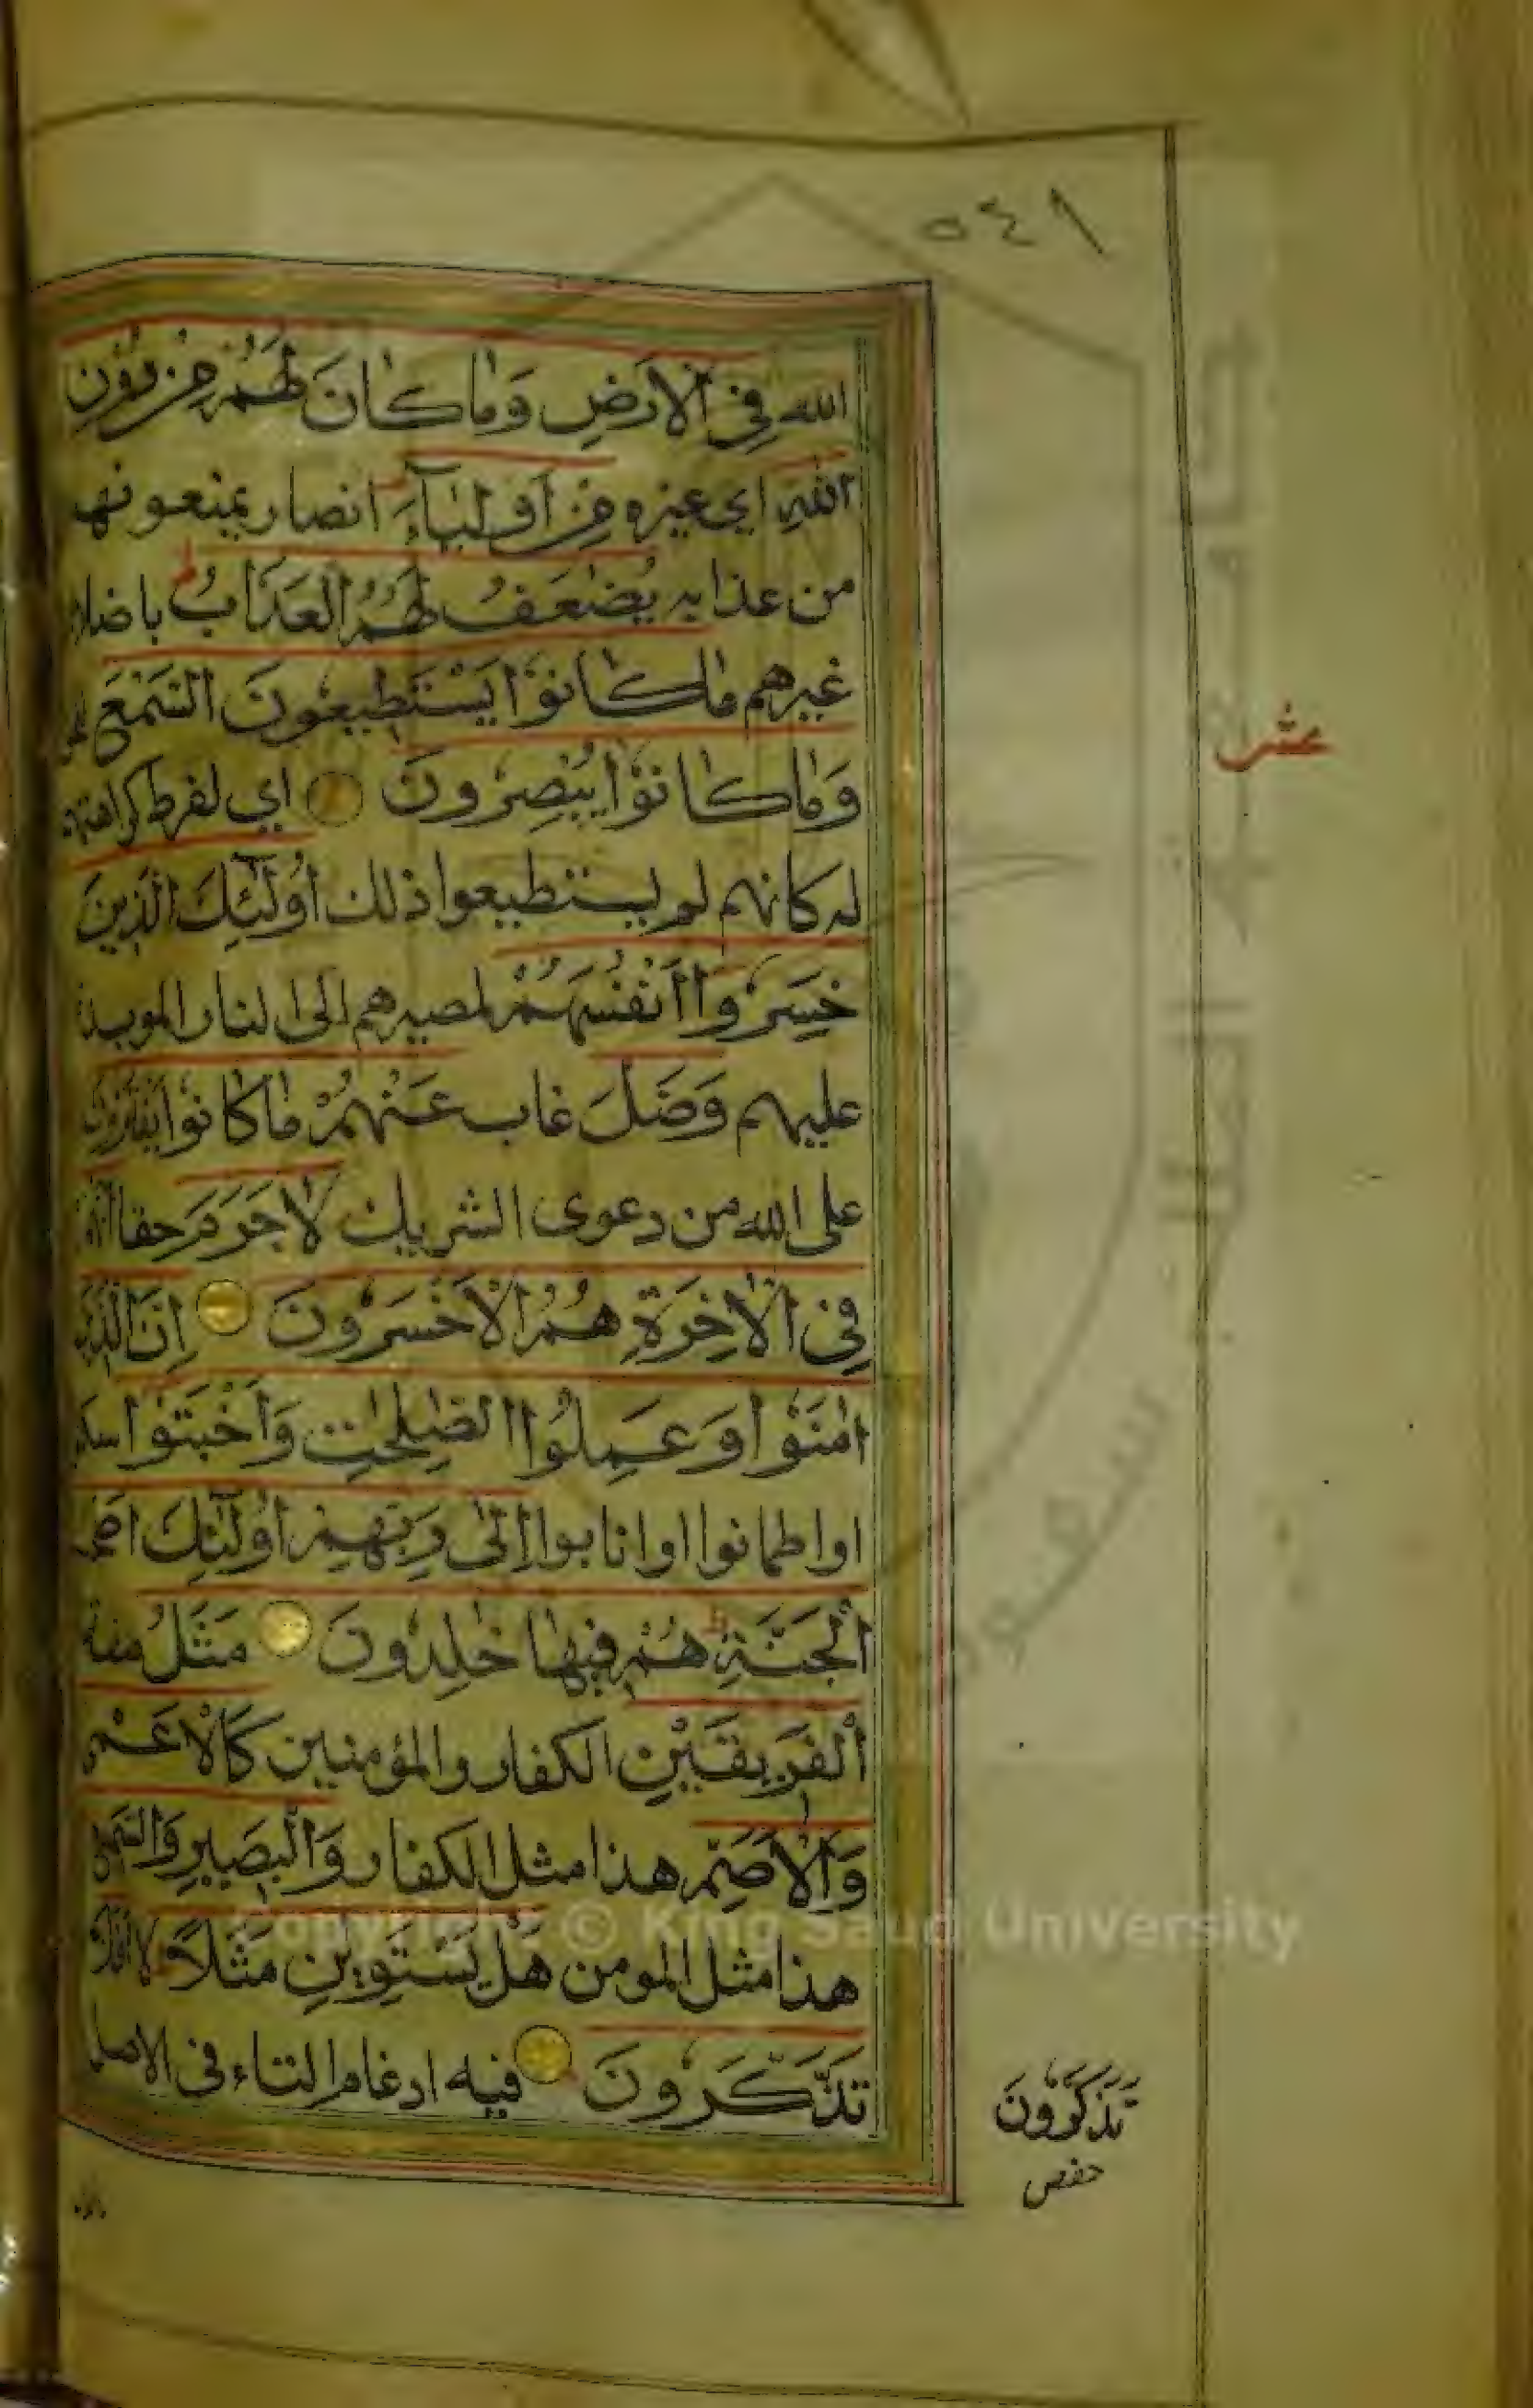 ٥٤١
الله فِي الْاَرْضِ وَمَا كَانَ لَهُمْ مِنْ دُوْنِ
اللهِ اي غيره مِنْ اَوْلِيَآءَ انصار يمنعونهم
من عذابه يُضٰعَفُ لَهُمُ الْعَذَابُ باضلا
غيرهم مَا كَانُوْا يَسْتَطِيعُونَ السَّمْعَ
وَمَا كَانُوْا يُبْصِرُونَ اي لفرط كراهتهم
له كانهم لم يستطيعوا ذلك اُولٰٓئِكَ الَّذِينَ
خَسِرُوْا اَنْفُسَهُمْ لمصيرهم الى النار الموبدة
عليهم وَضَلَّ غاب عَنْهُمْ مَا كَانُوْا يَفْتَرُوْنَ
على الله من دعوى الشريك لَا جَرَمَ حقا اَنَّهُمْ
فِي الْاٰخِرَةِ هُمُ الْاَخْسَرُونَ اِنَّ الَّذِينَ
اٰمَنُوْا وَعَمِلُوا الصّٰلِحٰتِ وَاَخْبَتُوْا
او اطمانوا او انابوا اِلٰى رَبِّهِمْ اُولٰٓئِكَ اَصْحٰبُ
الْجَنَّةِ هُمْ فِيهَا خٰلِدُونَ مَثَلُ صفة
الْفَرِيقَيْنِ الكفار والمؤمنين كَالْاَعْمٰى
وَالْاَصَمِّ هذا مثل الكفار وَالْبَصِيرِ وَالسَّمِيعِ
هذا مثل المومن هَلْ يَسْتَوِيٰنِ مَثَلًا لا اَفَلَا
تَذَّكَّرُونَ فيه ادغام التاء فى الاصل
عشر
تَذَكَّرُونَ
حفص
Copyright © King Saud University